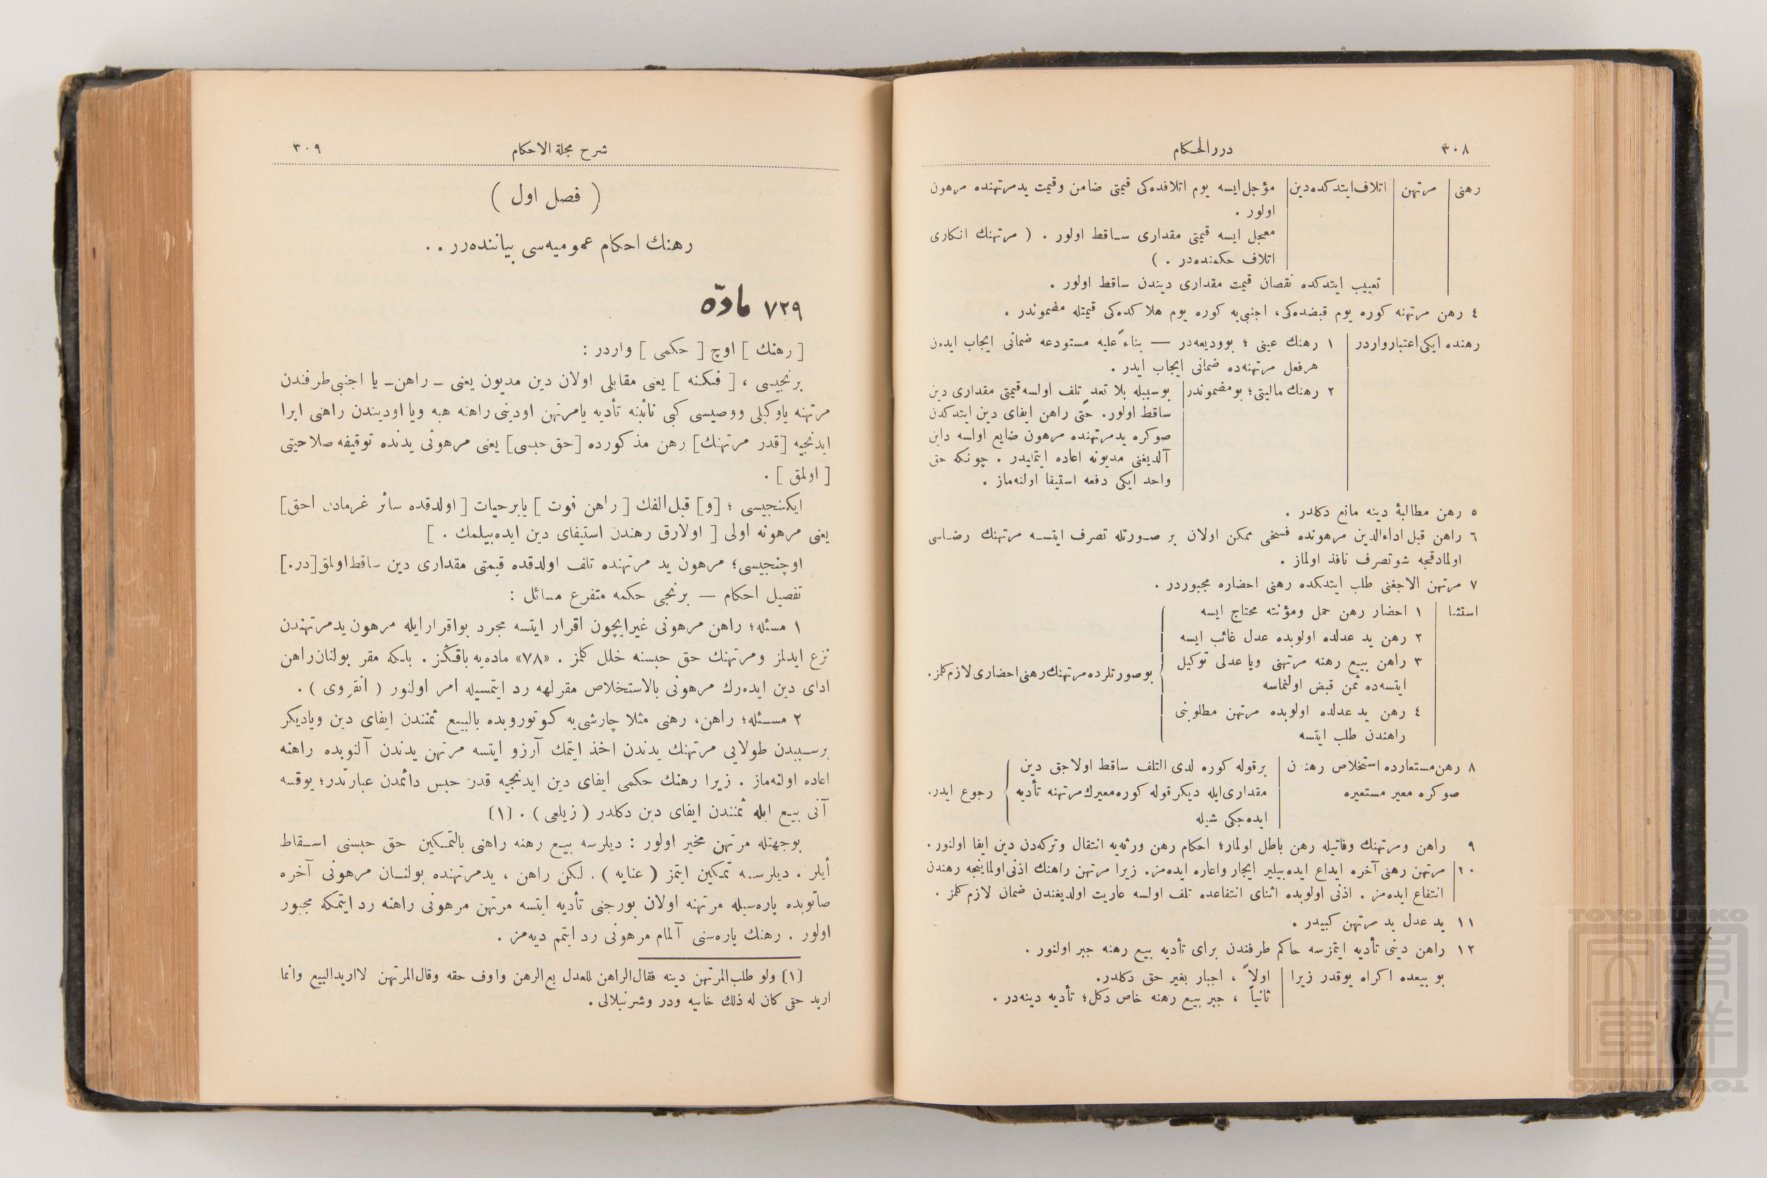 ٣٠٨
دررالحكام
رهنی
مرتهن
اتلاف ايتدكده دين
مؤجل ايسه يوم اتلافده‌كی قيمتی ضامن وقيمت يدمرتهنده مرهون
اولور .
معجل ايسه قيمتی مقداری ساقط اولور . ( مرتهنك انكاری
اتلاف حكمنده‌در . )
تعييب ايتدكده نقصان قيمت مقداری ديندن ساقط اولور .
٤ رهن مرتهنه كوره يوم قبضده‌كی، اجنبی‌يه كوره يوم هلاكده‌كی قيمتله مضموندر .
رهنده ايكی اعتبار واردر
١ رهنك عينی ؛ بووديعه‌در — بناءً عليه مستودعه ضمانی ايجاب ايدن
هرفعل مرتهنه‌ده ضمانی ايجاب ايدر .
٢ رهنك ماليتی؛ بومضموندر
بوسببله بلا تعد تلف اولسه قيمتی مقداری دين
ساقط اولور. حتی راهن ايفای دين ايتدكدن
صوكره يدمرتهنده مرهون ضايع اولسه داين
آلديغنی مديونه اعاده ايتمليدر . چونكه حق
واحد ايكی دفعه استيفا اولنه‌ماز .
٥ رهن مطالبۀ دينه مانع دكلدر .
٦ راهن قبل اداءالدين مرهونده فسخی ممكن اولان بر صورتله تصرف ايتسه مرتهنك رضاسی
اولمادقجه شو تصرف نافذ اولماز .
٧ مرتهن الاجغنی طلب ايتدكده رهنی احضاره مجبوردر .
استثنا
١ احضار رهن حمل ومؤنته محتاج ايسه
٢ رهن يد عدلده اولوبده عدل غائب ايسه
٣ راهن بيع رهنه مرتهنی ويا عدلی توكيل
ايتسه‌ده ثمن قبض اولنماسه
٤ رهن يد عدلده اولوبده مرتهن مطلوبنی
راهندن طلب ايتسه
بوصورتلرده مرتهنك رهنی احضاری لازم‌كلمز.
٨ رهن مستعارده استخلاص رهندن
صوكره معير مستعيره
برقوله كوره لدی التلف ساقط اولاجق دين
مقداری‌ايله ديكرقوله كوره معيرك مرتهنه تأديه
ايده‌جكی شيله
رجوع ايدر.
٩ راهن ومرتهنك وفاتيله رهن باطل اولماز؛ احكام رهن ورثه‌يه انتقال وتركه‌دن دين ايفا اولنور.
١٠ مرتهن رهنی آخره ايداع ايده‌بيلير ايجار واعاره ايده‌مز. زيرا مرتهن راهنك اذنی اولماينجه رهندن
انتفاع ايده‌مز . اذنی اولوبده اثنای انتفاعده تلف اولسه عاريت اولديغندن ضمان لازم كلمز .
١١ يد عدل يد مرتهن كبيدر .
١٢ راهن دينی تأديه ايتمزسه حاكم طرفندن برای تأديه بيع رهنه جبر اولنور.
بو بيعده اكراه يوقدر زيرا
اولاً ، اجبار بغير حق دكلدر.
ثانياً ، جبر بيع رهنه خاص دكل؛ تأديه دينه‌در .
شرح مجلة الاحكام
٣٠٩
( فصل اول )
رهنك احكام عموميه‌سی بياننده‌در . .
مادّه ٧٢٩
[ رهنك ] اوچ [ حكمی ] واردر :
برنجيسی ، [ فكنه ] يعنی مقابلی اولان دين مديون يعنی ـ راهن ـ يا اجنبی طرفندن
مرتهنه ياوكيلی ووصيسی كبی نائبنه تأديه يامرتهن اودينی راهنه هبه ويا اوديندن راهنی ابرا
ايدنجيه [قدر مرتهنك] رهن مذكورده [حق حبسی] يعنی مرهونی يدنده توقيفه صلاحيتی
[ اولمق ] .
ايكنجيسی ؛ [و] قبل‌الفك [ راهن فوت ] يابرحيات [ اولدقده سائر غرمادن احق]
يعنی مرهونه اولی [ اولارق رهندن استيفای دين ايده‌بيلمك . ]
اوچنجيسی؛ مرهون يد مرتهنده تلف اولدقده قيمتی مقداری دين ساقط اولمق[در.]
تفصيل احكام — برنجی حكمه متفرع مسائل :
١ مسئله؛ راهن مرهونی غيرايچون اقرار ايتسه مجرد بواقرارايله مرهون يدمرتهندن
نزع ايدلمز ومرتهنك حق حبسنه خلل كلمز . «٧٨» ماده‌يه باقڭز . بلكه مقر بولنان راهن
ادای دين ايده‌رك مرهونی بالاستخلاص مقرلهه رد ايتمسيله امر اولنور ( انقروی ) .
٢ مسئله؛ راهن، رهنی مثلا چارشی‌يه كوتوروبده بالبيع ثمنندن ايفای دين وياديكر
برسببدن طولايی مرتهنك يدندن اخذ ايتمك آرزو ايتسه مرتهن يدندن آلنوبده راهنه
اعاده اولنه‌ماز . زيرا رهنك حكمی ايفای دين ايدنجيه قدر حبس دائمدن عبارتدر؛ يوقسه
آنی بيع ايله ثمنندن ايفای دين دكلدر ( زيلعی ) . (١)
بوجهتله مرتهن مخير اولور : ديلرسه بيع رهنه راهنی بالتمكين حق حبسنی اسقاط
أيلر . ديلرسه تمكين ايتمز ( عنايه ) . لكن راهن ، يدمرتهنده بولنان مرهونی آخره
صاتوبده پاره‌سيله مرتهنه اولان بورجنی تأديه ايتسه مرتهن مرهونی راهنه رد ايتمكه مجبور
اولور . رهنك پاره‌سنی آلمام مرهونی رد ايتمم ديه‌مز .
(١) ولو طلب‌المرتهن دينه فقال‌الراهن للعدل بع‌الرهن واوف حقه وقال‌المرتهن لااريدالبيع وانما
اريد حقی كان له ذلك خانيه ودر وشرنبلالی .
TOYO BUNKO